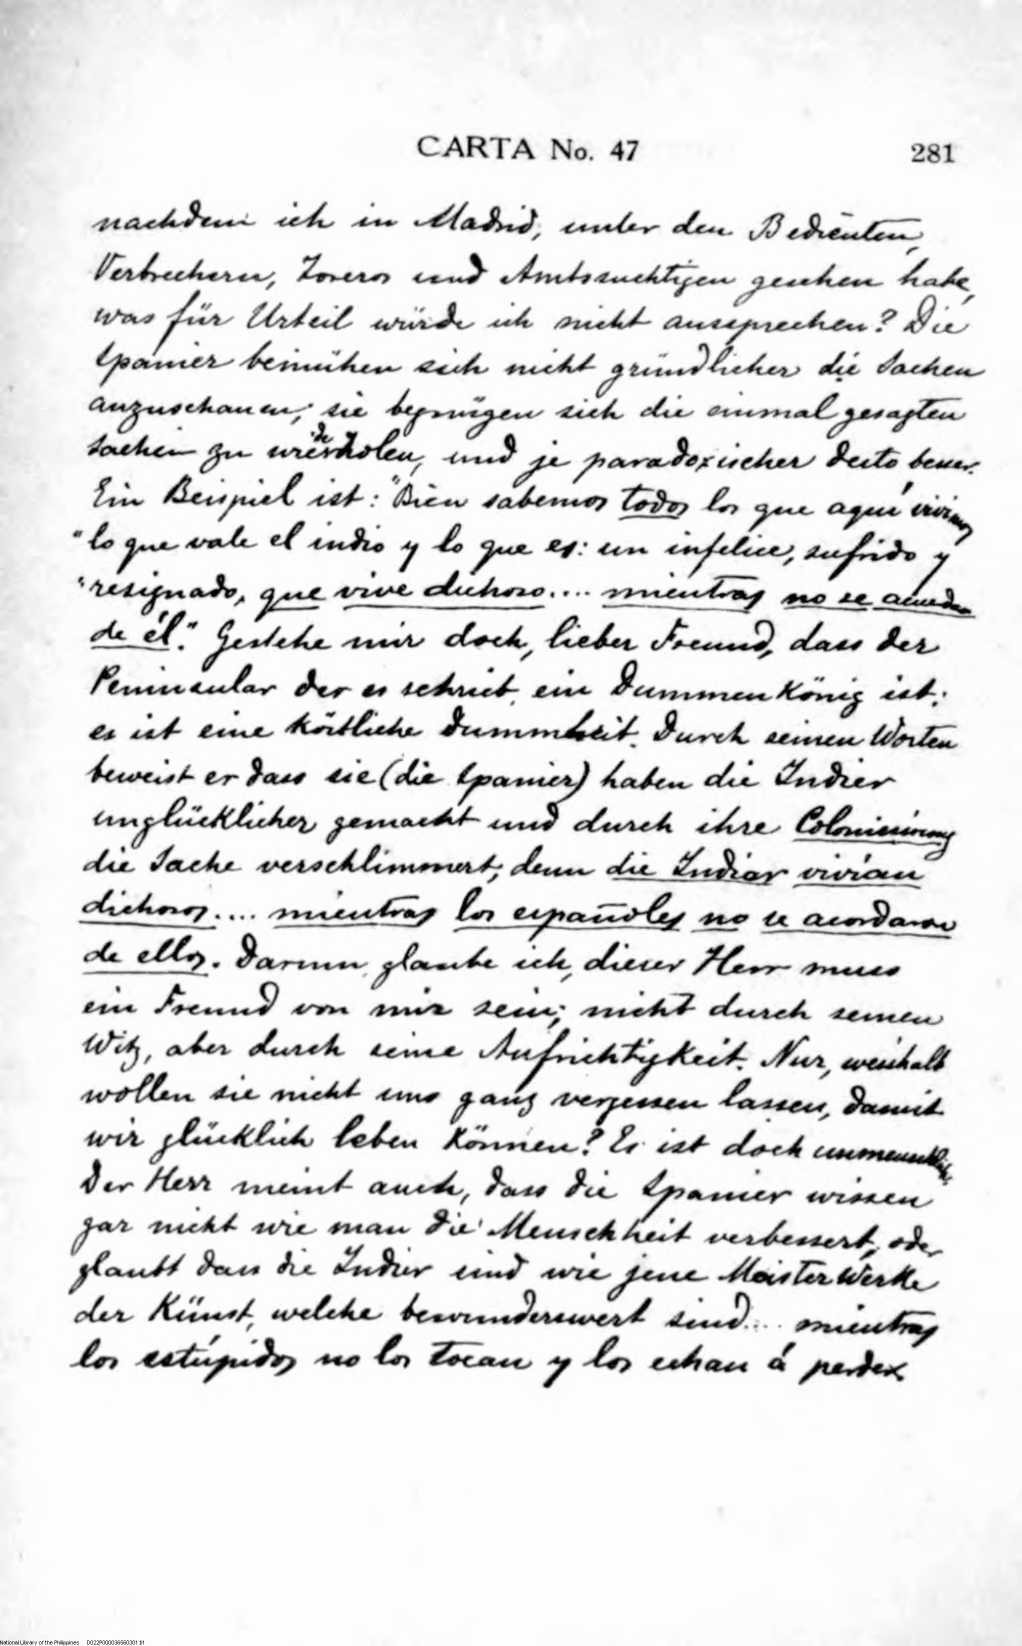 CARTA No. 47 281
nachdem ich in Madrid, unter den Bedienten,
Verbrechern, Toreros und Amtssuchtigen gesehen habe,
was für Urteil würde ich nicht aussprechen? Die
Spanier bemühen sich nicht gründlicher die Sachen
anzuschauen; sie begnügen sich die einmal gesagten
Sachen zu wiederholen, und je paradoxischer desto besser.
Ein Beispiel ist: "Bien sabemos todos los que aquí vivimos
"lo que vale el indio y lo que es: un infelice, sufrido y
"resignado, que vive dichoso.... mientras no se acuerdan
de él." Gestehe mir doch, lieber Freund, dass der
Peninsular der es schrieb, ein Dummen König ist;
es ist eine köstliche Dummheit. Durch seinen Worten
beweist er dass sie (die Spanier) haben die Indier
unglücklicher gemacht und durch ihre Colonisirung
die Sache verschlimmert, denn die Indier vivían
dichosos.... mientras los españoles no se acordaron
de ellos. Darum, glaube ich, dieser Herr muss
ein Freund von mir sein; nicht durch seinen
Witz, aber durch seine Aufrichtigkeit. Nur, weshalb
wollen sie nicht uns ganz vergessen lassen, damit
wir glücklich leben können? Es ist doch unmenschlich.
Der Herr meint auch, dass die Spanier wissen
gar nicht wie man die Menschheit verbessert, oder
glaubt dass die Indier sind wie jene Meister Werke
der Künst, welche bewunderswert sind.... mientras
los estúpidos no los tocan y los echan á perder
National Library of the Philippines